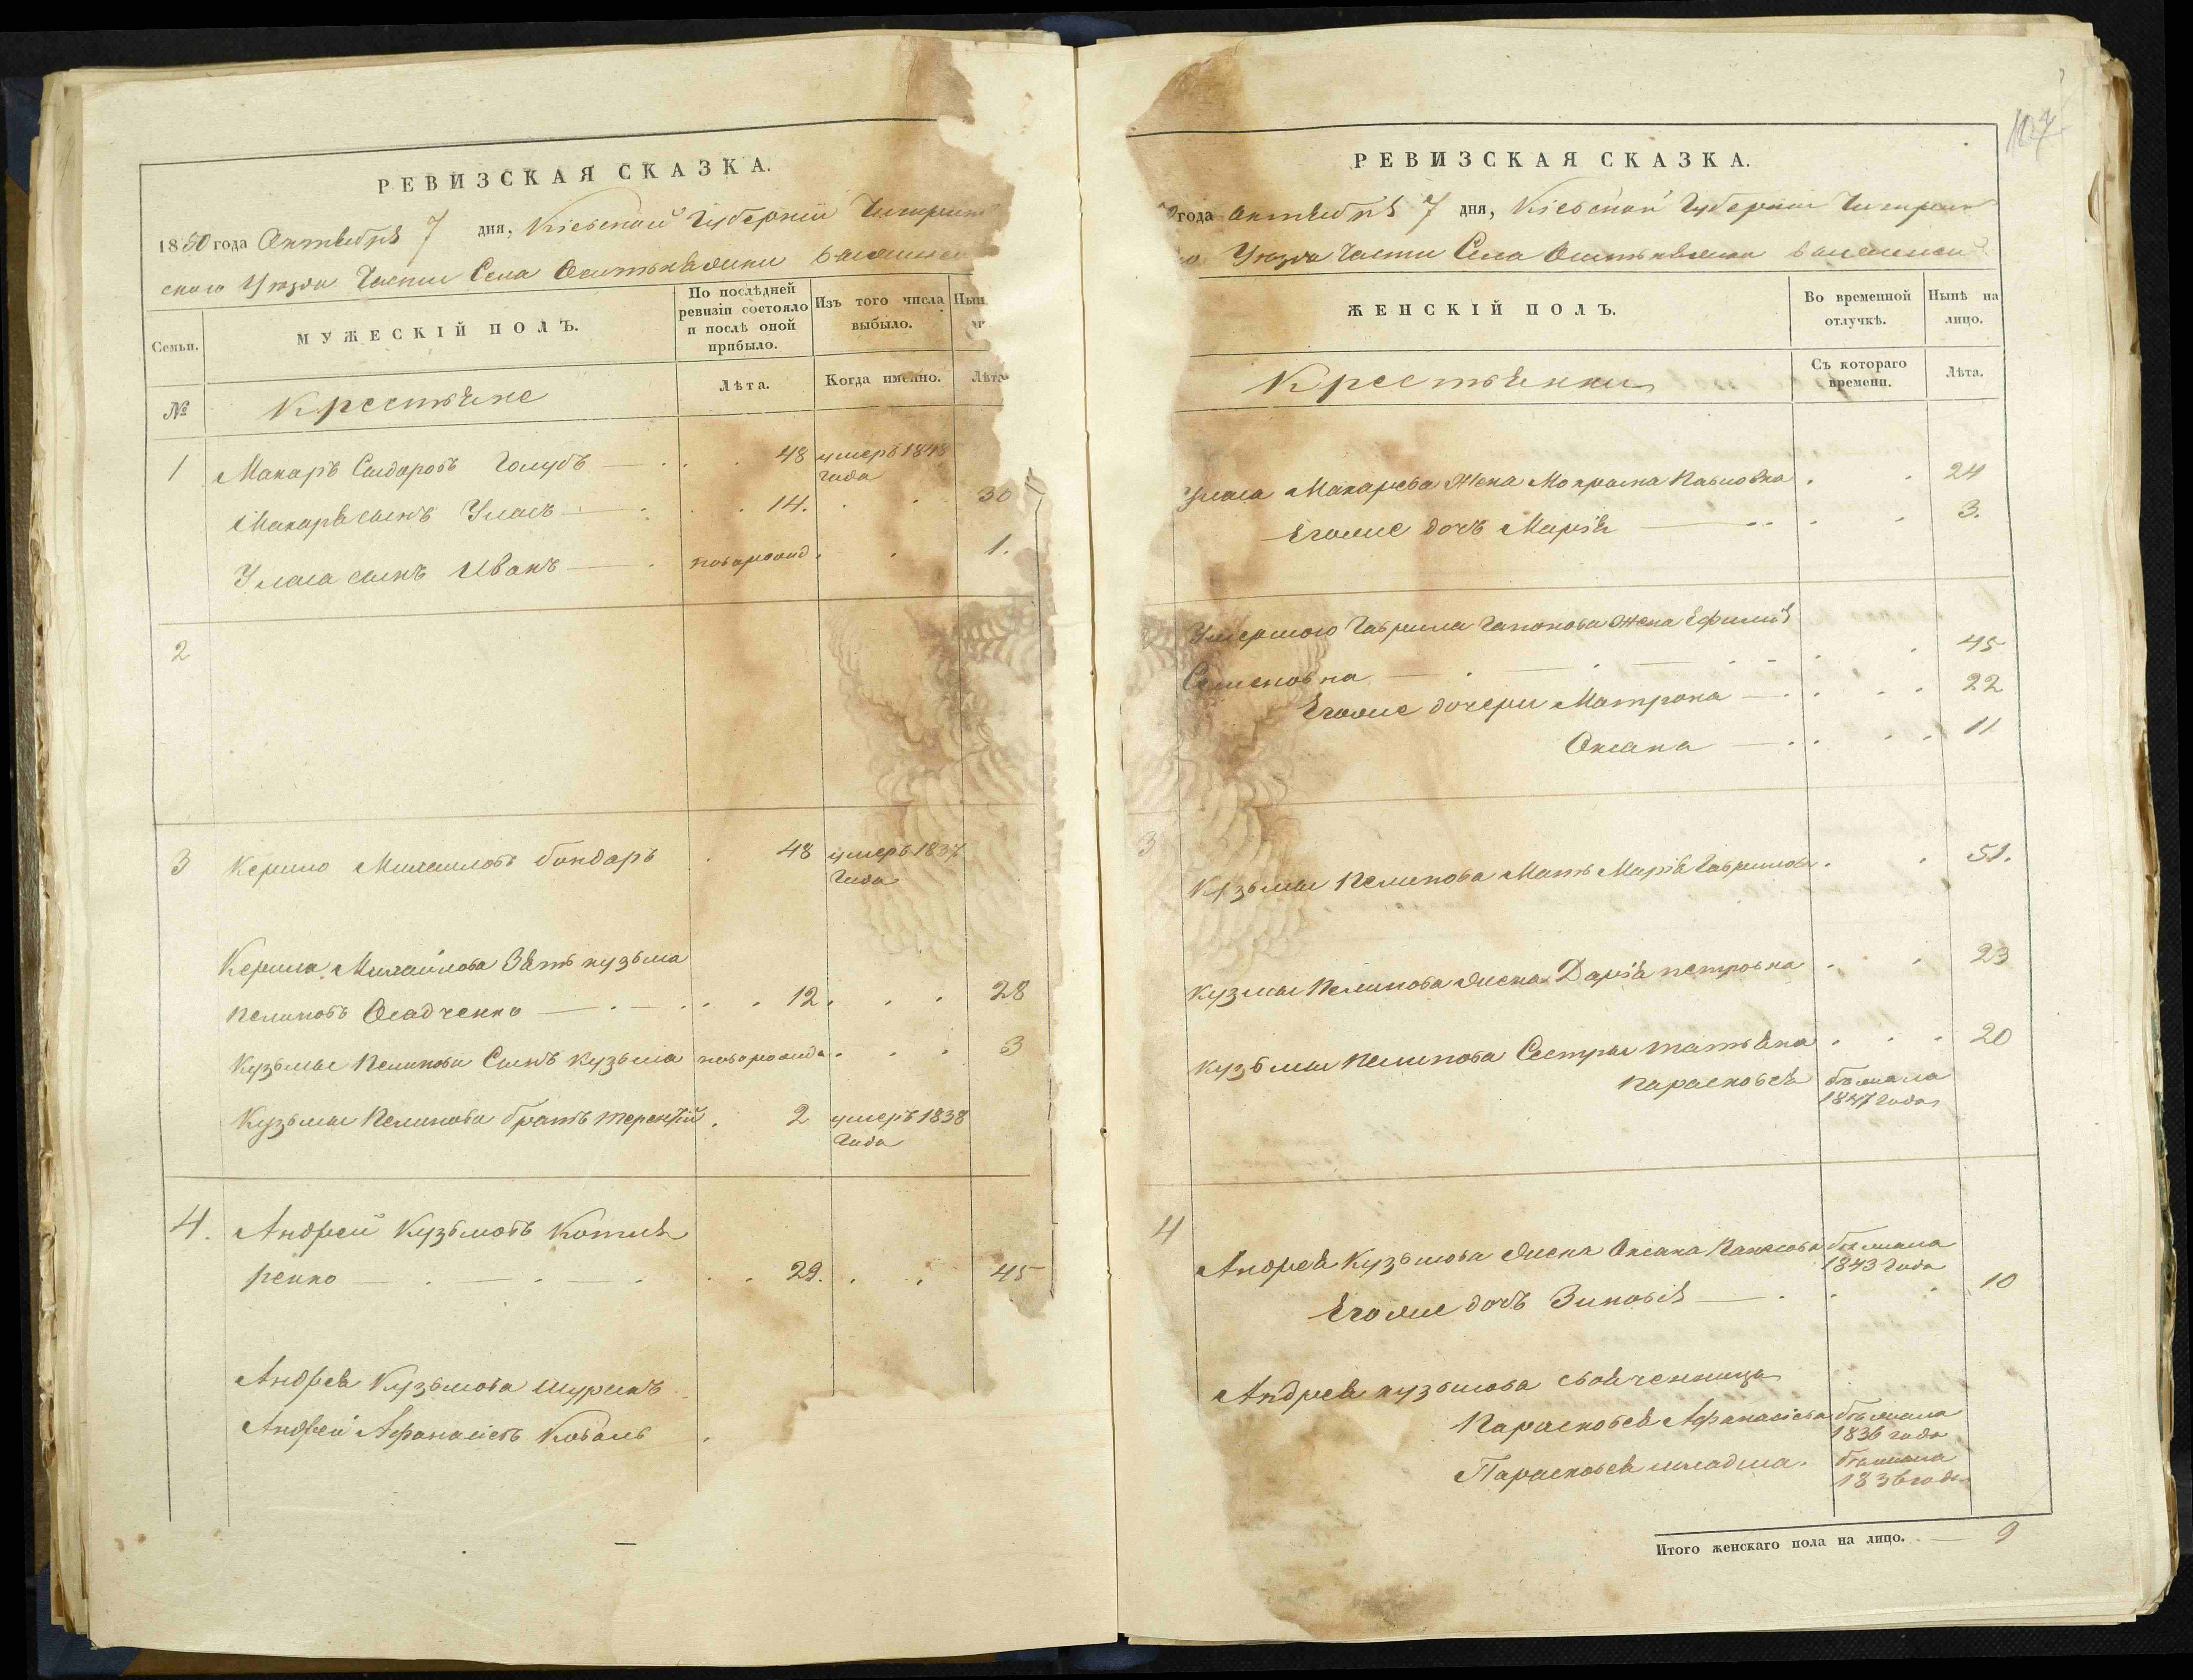 РЕВИЗСКАЯ СКАЗКА.
1850 года Октября 7 дня, Кіевской Губерніи Чигрин
скаго Уѣзда Части Села
Семьи.
МУЖЕСКІЙ ПОЛЪ.
По послѣдней ревизіи состояло и послѣ оной прибыло.
Изъ того числа выбыло.
Нын
№
Крестьяне
Лѣта.
Когда именно.
Лѣта
1 Макаръ Сидоровъ Голубъ 48 умеръ 1848
года
Макара сынъ Уласъ 14. 30
Уласа сынъ Иванъ новорожд. 1.
2
3 Керило Михайловъ бондарь 48 умеръ 1837
года
Керила Михайлова Зять кузьма
Осадченко 12 28
Кузьмы Сынъ кузьма новорожд. 3
Кузьмы братъ терентій 2 умеръ 1838
года
4. Андрей Кузьмовъ Котля
ренко 29. 45
Андрея Кузьмова шуринъ
Андрей Афанасіевъ Коваль
РЕВИЗСКАЯ СКАЗКА.
года Октября 7 дня, Кіевской Губерніи Чигрин
Уѣзда Части Села
ЖЕНСКІЙ ПОЛЪ.
Во временной отлучкѣ.
Нынѣ на лицо.
Крестьянки
Съ котораго времени.
Лѣта.
Уласа Макарова Жена Мокрына Павловна 24
Егоже дочь Марія 3.
Умершого Гаврила Гапонова Жена Ефимія
Семеновна 45
Егоже дочери Матрона 22
Оксана 11
3
Кузьмы Мать Марія Гаврилова 51.
Кузмы жена Дарія петровна 23
кузьмы Сестры татьяна 20
парасковея
1847 года
4
Андрея Кузьмова жена Оксана
1843 года
Егоже дочь Зиновія 10
Андрея кузьмова своячениица
Парасковея Афанасіева
1836 года
Парасковея младша.
1836 года
Итого женскаго пола на лицо. 9